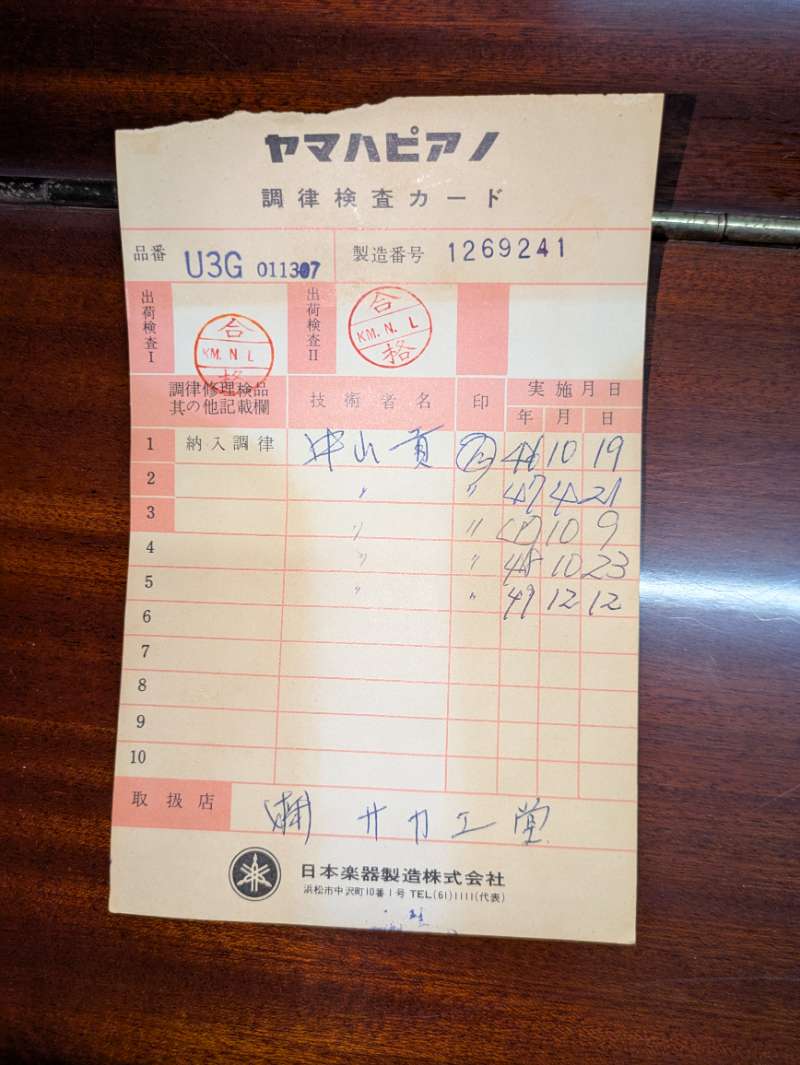 ヤマハピアノ
調律検査カード
品番 U3G 011307 製造番号 1269241
出荷検査I 合格 KM. N. L 出荷検査II 合格 KM. N. L
調律修理検品其の他記載欄 技術者名 印 実施月日
年 月 日
1 納入調律 中山 貢 46 10 19
2 〃 〃 47 4 21
3 〃 〃 47 10 9
4 〃 〃 48 10 23
5 〃 〃 49 12 12
6
7
8
9
10
取扱店 ㈱ サカエ堂
日本楽器製造株式会社
浜松市中沢町10番1号 TEL(61)1111(代表)